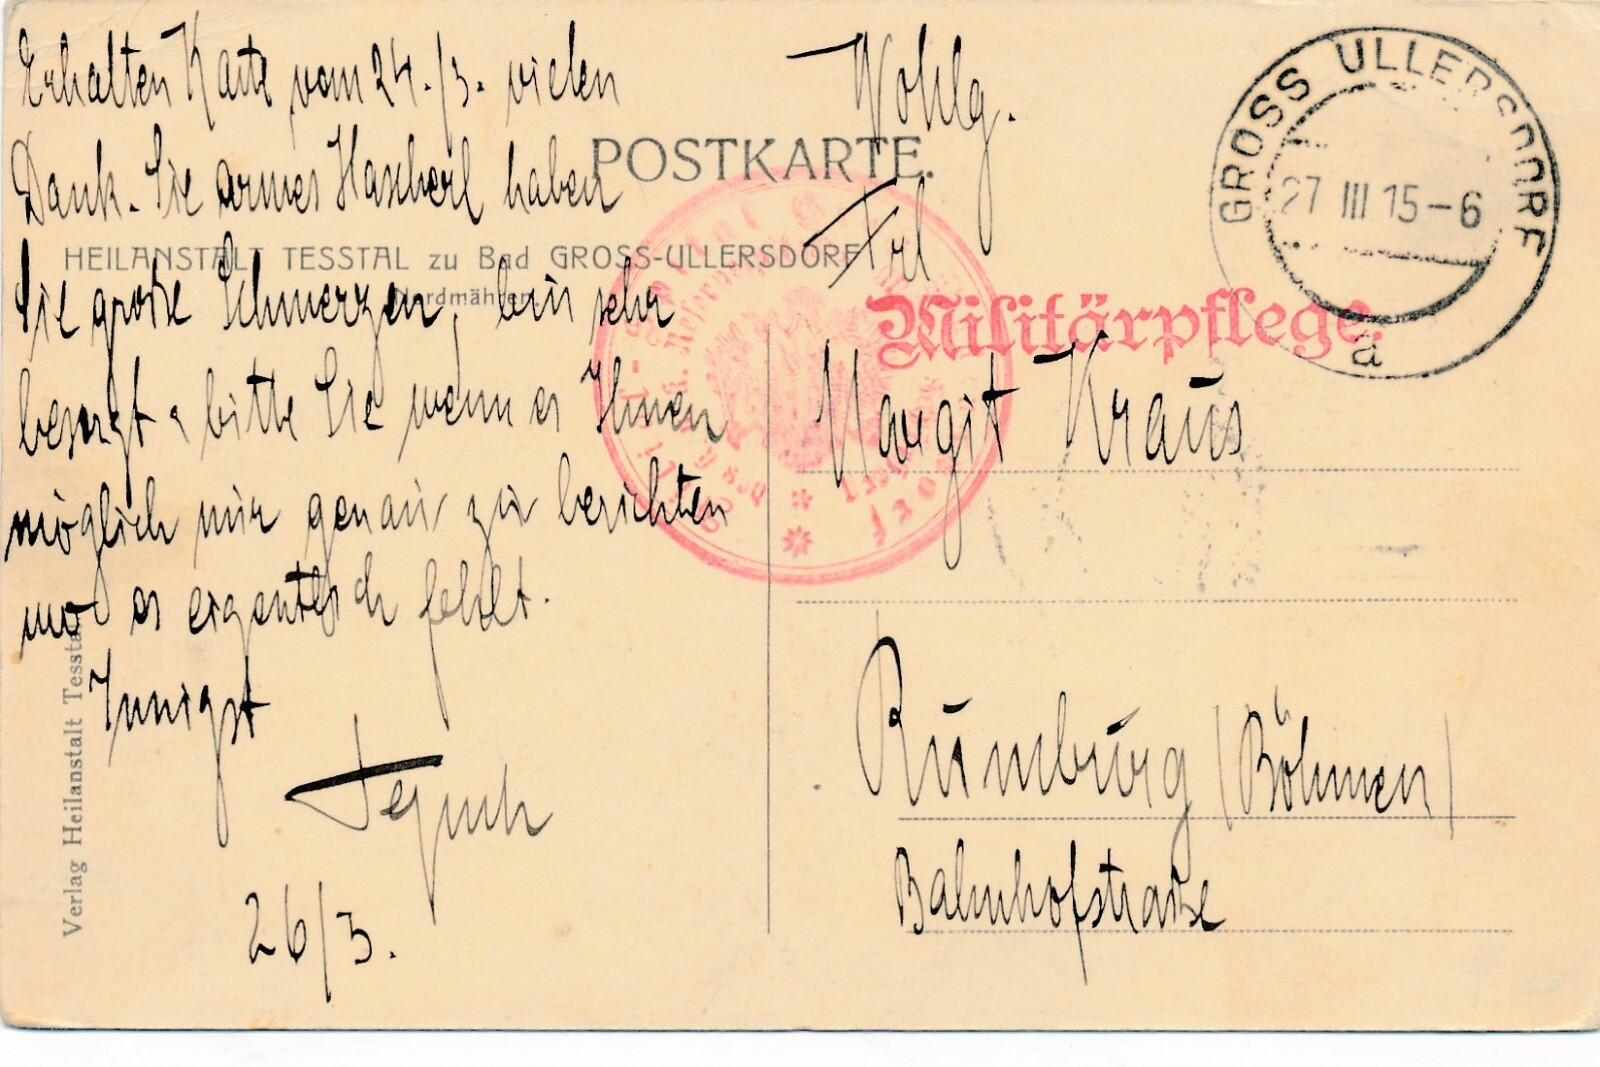 Erhalten Karte vom 24./3. vielen
Dank. Sie armes Hascherl haben
Sie große Schmerzen, bin sehr
besorgt & bitte Sie wenn es Ihnen
möglich mir genau zu berichten
wo es eigentlich fehlt.
Innigst
26/3.
POSTKARTE.
HEILANSTALT TESSTAL zu Bad GROSS-ULLERSDORF
Nordmähren
Verlag Heilanstalt Tesstal
GROSS ULLERSDORF
27 III 15-6
a
Militärpflege.
Wohlg.
Frl
Margit Kraus
Rumburg (Böhmen)
Bahnhofstraße